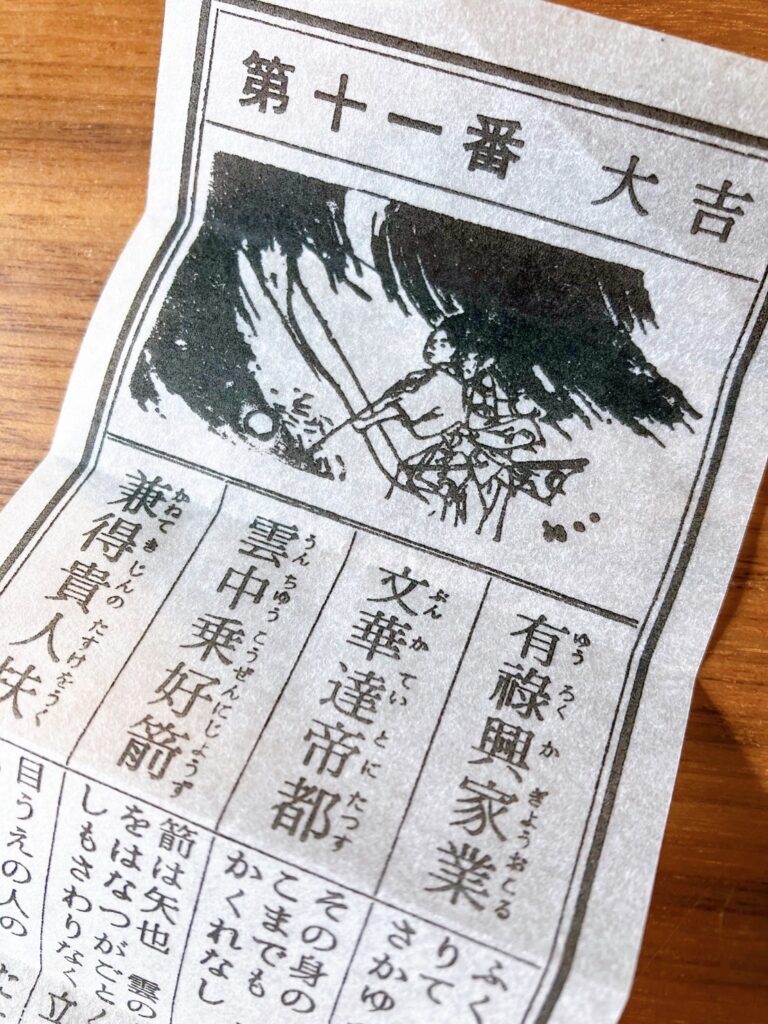 第十一番 大吉
有祿興家業
ゆう ろく か ぎようおこる
文華達帝都
ぶん か てい とに たつす
雲中乗好箭
うん ちゆう こうぜんにじようず
兼得貴人扶
かねて きじんの たすけをうく
ふく
りて
さかゆ
その身の
こまでも
かくれなし
箭は矢也 雲の
をはなつがごとく
しもさわりなく
立
目うえの人の